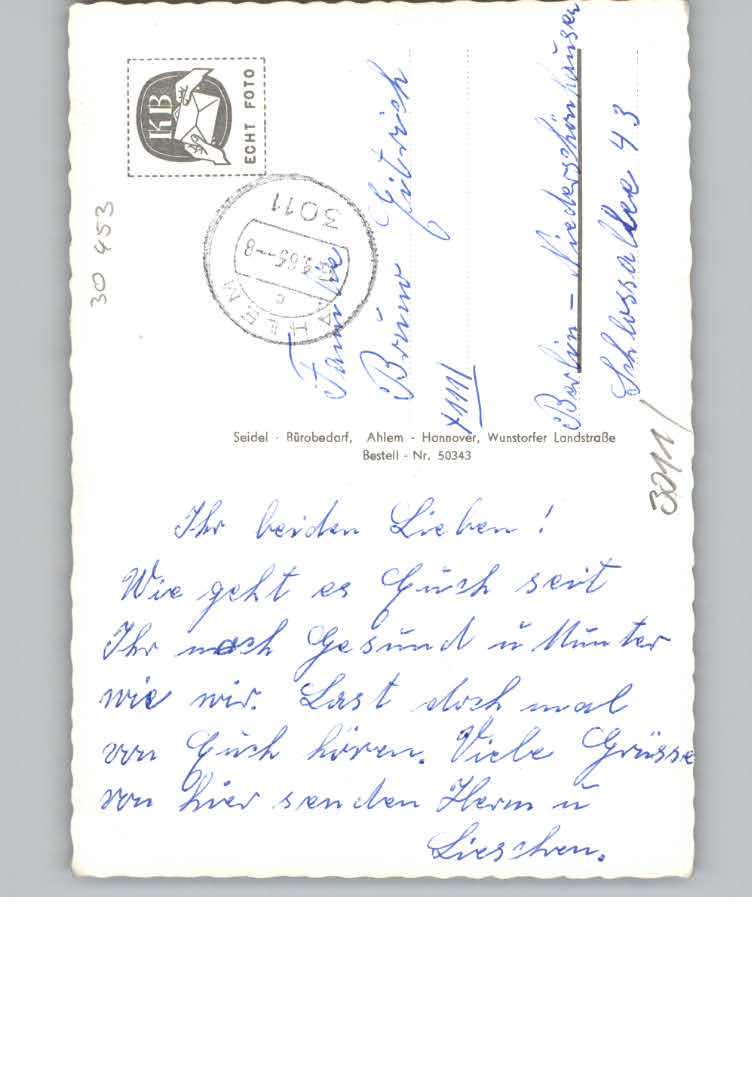 Ihr beiden Lieben!
Wie geht es Euch seit
Ihr noch Gesund u Munter
wie wir. Last doch mal
von Euch hören. Viele Grüsse
von hier senden Herm u
Lieschen.
Seidel - Bürobedarf, Ahlem - Hannover, Wunstorfer Landstraße
Bestell - Nr. 50343
KB
ECHT FOTO
3011
.5.65--8
c
AHLEM
Familie
Bruno
Berlin - Niederschönhausen
Schlossallee 43
30 453
3011/